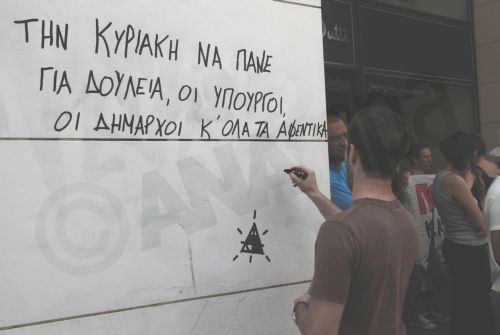 ΤΗΝ ΚΥΡΙΑΚΗ ΝΑ ΠΑΝΕ
ΓΙΑ ΔΟΥΛΕΙΑ, ΟΙ ΥΠΟΥΡΓΟΙ,
ΟΙ ΔΗΜΑΡΧΟΙ Κ' ΟΛΑ ΤΑ ΑΦΕΝΤΙΚΑ
Dutti
© ANA